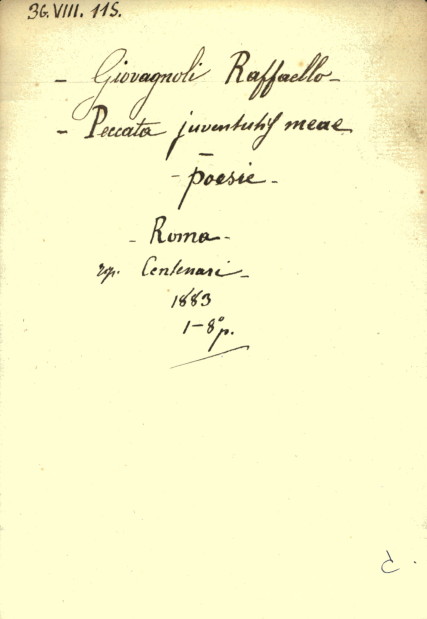 36. VIII. 115.
- Giovagnoli Raffaello -
- Peccata juventutis meae
- poesie -
- Roma -
Centenari -
1883
1-8° p.